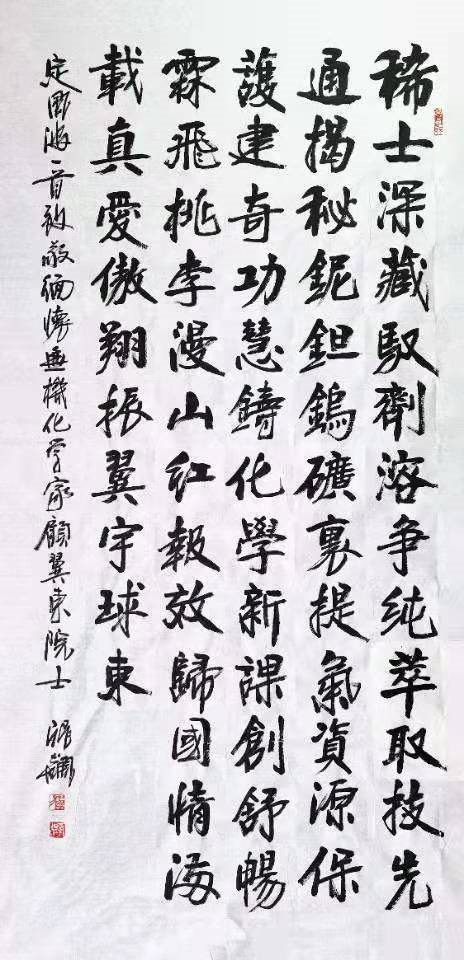 稀土深藏馭劑溶争纯萃取技先
通揭秘鈮鉭鎢礦裏提氣資源保
護建奇功慧鑄化學新課創舒暢
霖飛桃李漫山红報效歸國情海
載真愛傲翔振翼宇球東
定風波一首致敬缅懷無機化学家顧翼東院士